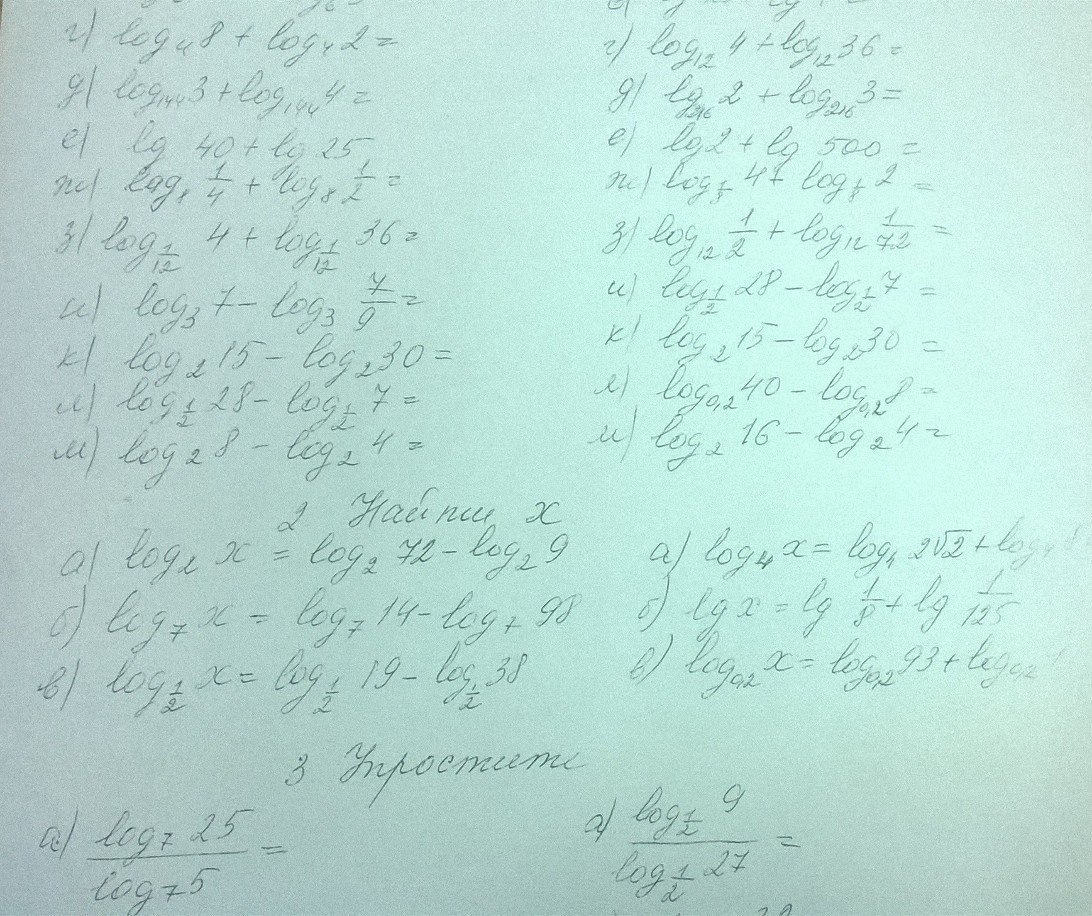 г) log₄ 8 + log₄ 2 =
д) log₁₄₄ 3 + log₁₄₄ 4 =
е) lg 40 + lg 25
ж) log₈ 1/4 + log₈ 1/2 =
з) log_1/12 4 + log_1/12 36 =
и) log₃ 7 − log₃ 7/9 =
к) log₂ 15 − log₂ 30 =
л) log_1/2 28 − log_1/2 7 =
м) log₂ 8 − log₂ 4 =
г) log₁₂ 4 + log₁₂ 36 =
д) log₂₁₆ 2 + log₂₁₆ 3 =
е) lg 2 + lg 500 =
ж) log_1/8 4 + log_1/8 2 =
з) log₁₂ 1/2 + log₁₂ 1/72 =
и) log_1/2 28 − log_1/2 7 =
к) log₂ 15 − log₂ 30 =
л) log₀,₂ 40 − log₀,₂ 8 =
м) log₂ 16 − log₂ 4 =
2 Найти x
а) log₂ x = log₂ 72 − log₂ 9
б) log₇ x = log₇ 14 − log₇ 98
в) log_1/2 x = log_1/2 19 − log_1/2 38
а) log₄ x = log₄ 2√2 + log₄ 8
б) lg x = lg 1/8 + lg 1/125
в) log₀,₂ x = log₀,₂ 93 + log₀,₂
3 Упростите
а) log₇ 25 / log₇ 5 =
а) log_1/2 9 / log_1/2 27 =